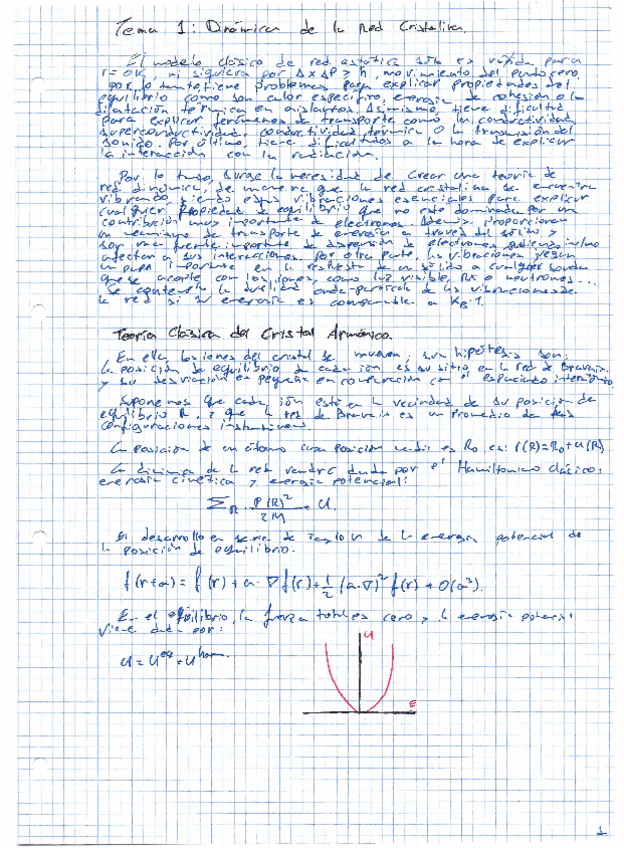 Tema 1: Dinámica de la Red Cristalina.
El modelo clásico de red estática sólo es válida para
T = 0K, ni siquiera por Δx ΔP > ħ, movimiento del punto cero,
por lo tanto, tiene problemas para explicar propiedades del
equilibrio como son calor específico, energía de cohesión o la
dilatación térmica en aislantes. Asimismo tiene dificultad
para explicar fenómenos de transporte como la conductividad,
superconductividad, conductividad térmica o la transmisión del
sonido. Por último, tiene dificultades a la hora de explicar
la interacción con la radiación.
Por lo tanto, surge la necesidad de crear una teoría de
red dinámica, de manera que la red cristalina se encuentra
vibrando, siendo estas vibraciones esenciales para explicar
cualquier propiedad de equilibrio que no esté dominada por una
contribución muy importante de electrones. Además, proporcionan
un mecanismo de transporte de energía a través del sólido y
son una fuente importante de dispersión de electrones, pudiendo incluso
afectar a sus interacciones. Por otra parte, las vibraciones juegan
un papel importante en la respuesta de un sólido a cualquier sonda
que se acople con los iones, como luz visible, RX o neutrones...
Se contempla la dualidad onda-partícula de las vibraciones de
la red si su energía es comparable a K_B·T.
Teoría Clásica del Cristal Armónico.
En ella, los iones del cristal se mueven, sus hipótesis son:
la posición de equilibrio de cada ión es su sitio en la red de Bravais
y su desviación es pequeña en comparación con el espaciado interiónico.
Suponemos que cada ión está en la vecindad de su posición de
equilibrio R, y que la red de Bravais es un promedio de las
configuraciones instantáneas.
La posición de un átomo cuya posición media es R₀ es: r(R)=R₀+u(R)
La dinámica de la red vendrá dada por el Hamiltoniano clásico:
energía cinética y energía potencial:
Σ_R P(R)²/2M + U.
El desarrollo en serie de Taylor de la energía potencial de
la posición de equilibrio.
f(r+a) = f(r) + a·∇f(r) + 1/2 (a·∇)² f(r) + O(a³).
En el equilibrio, la fuerza total es cero y la energía potencial
viene dada por:
U = U^eq + U^harm.
U
1